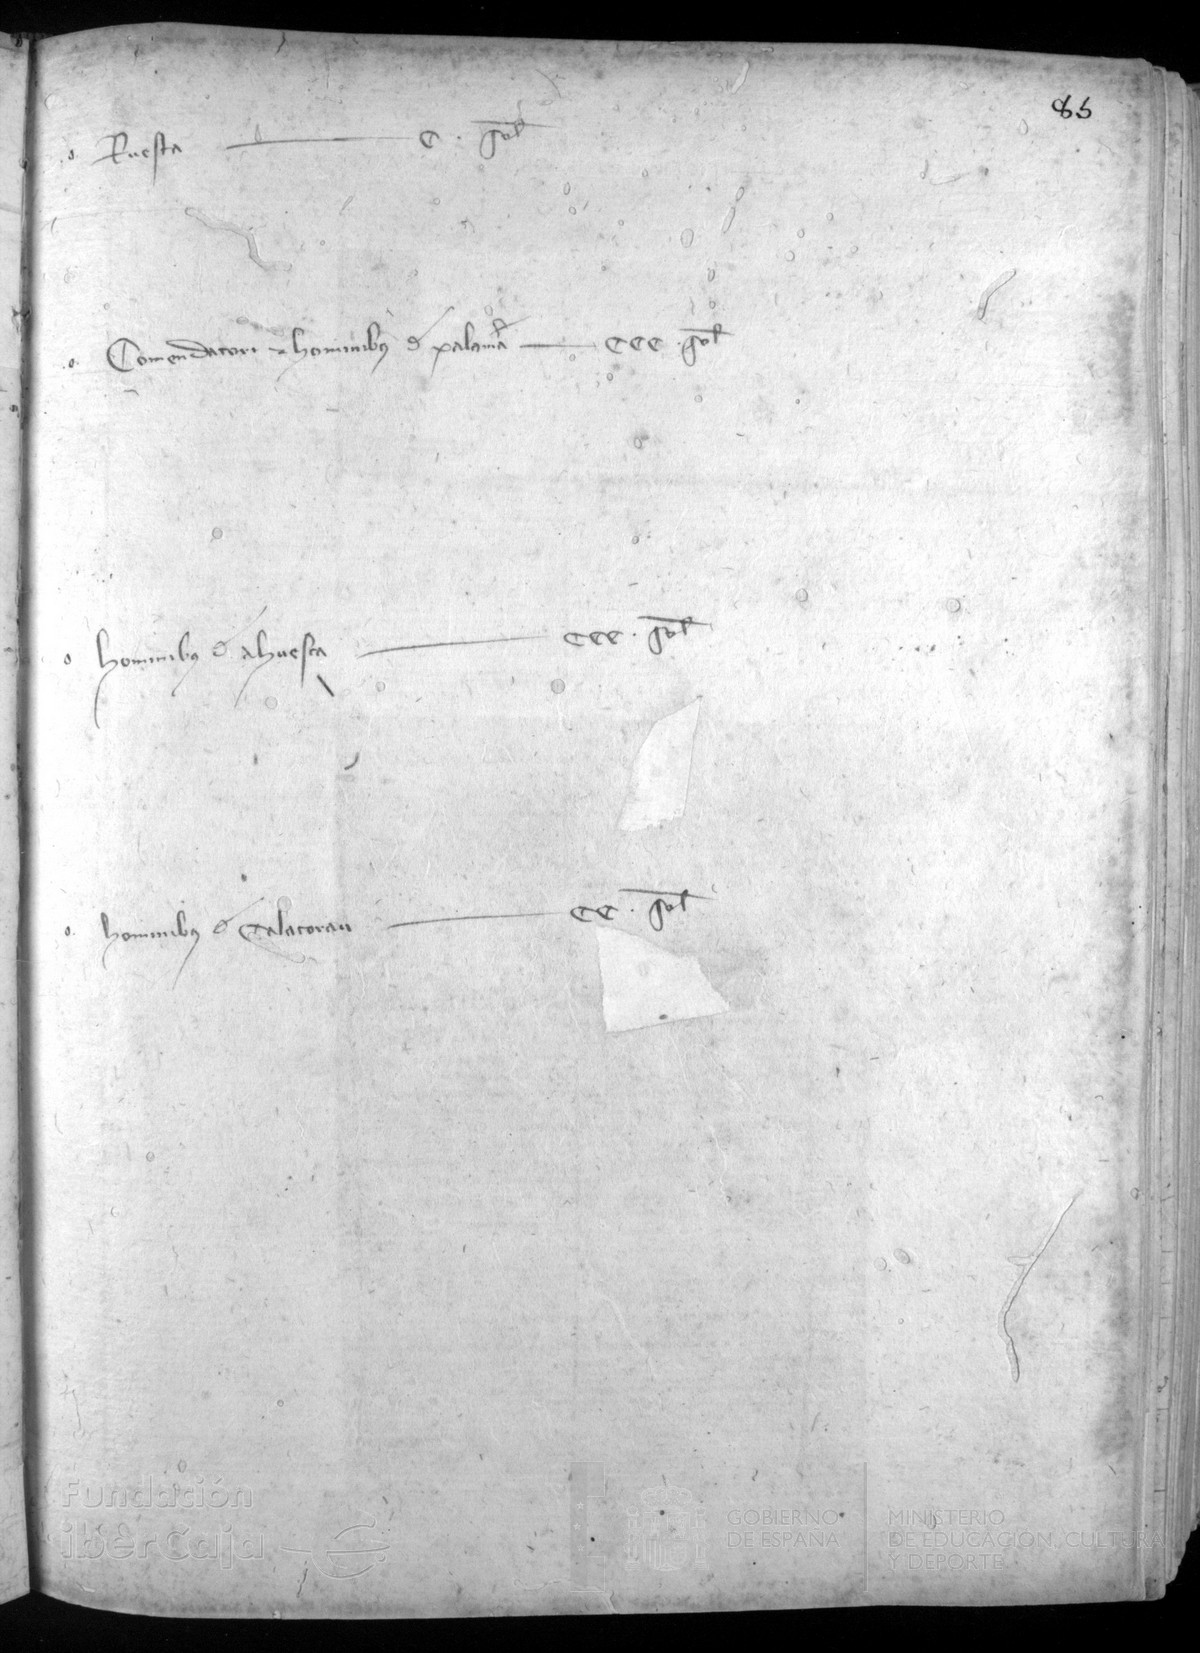 85
Ruesta — C . sol
Comendatori & hominibus de palama — CCC . sol
hominibus de ahuesca — CCC . sol
hominibus de Calatorau — CC . sol
Fundación
iberCaja
GOBIERNO
DE ESPAÑA
MINISTERIO
DE EDUCACIÓN, CULTURA
Y DEPORTE